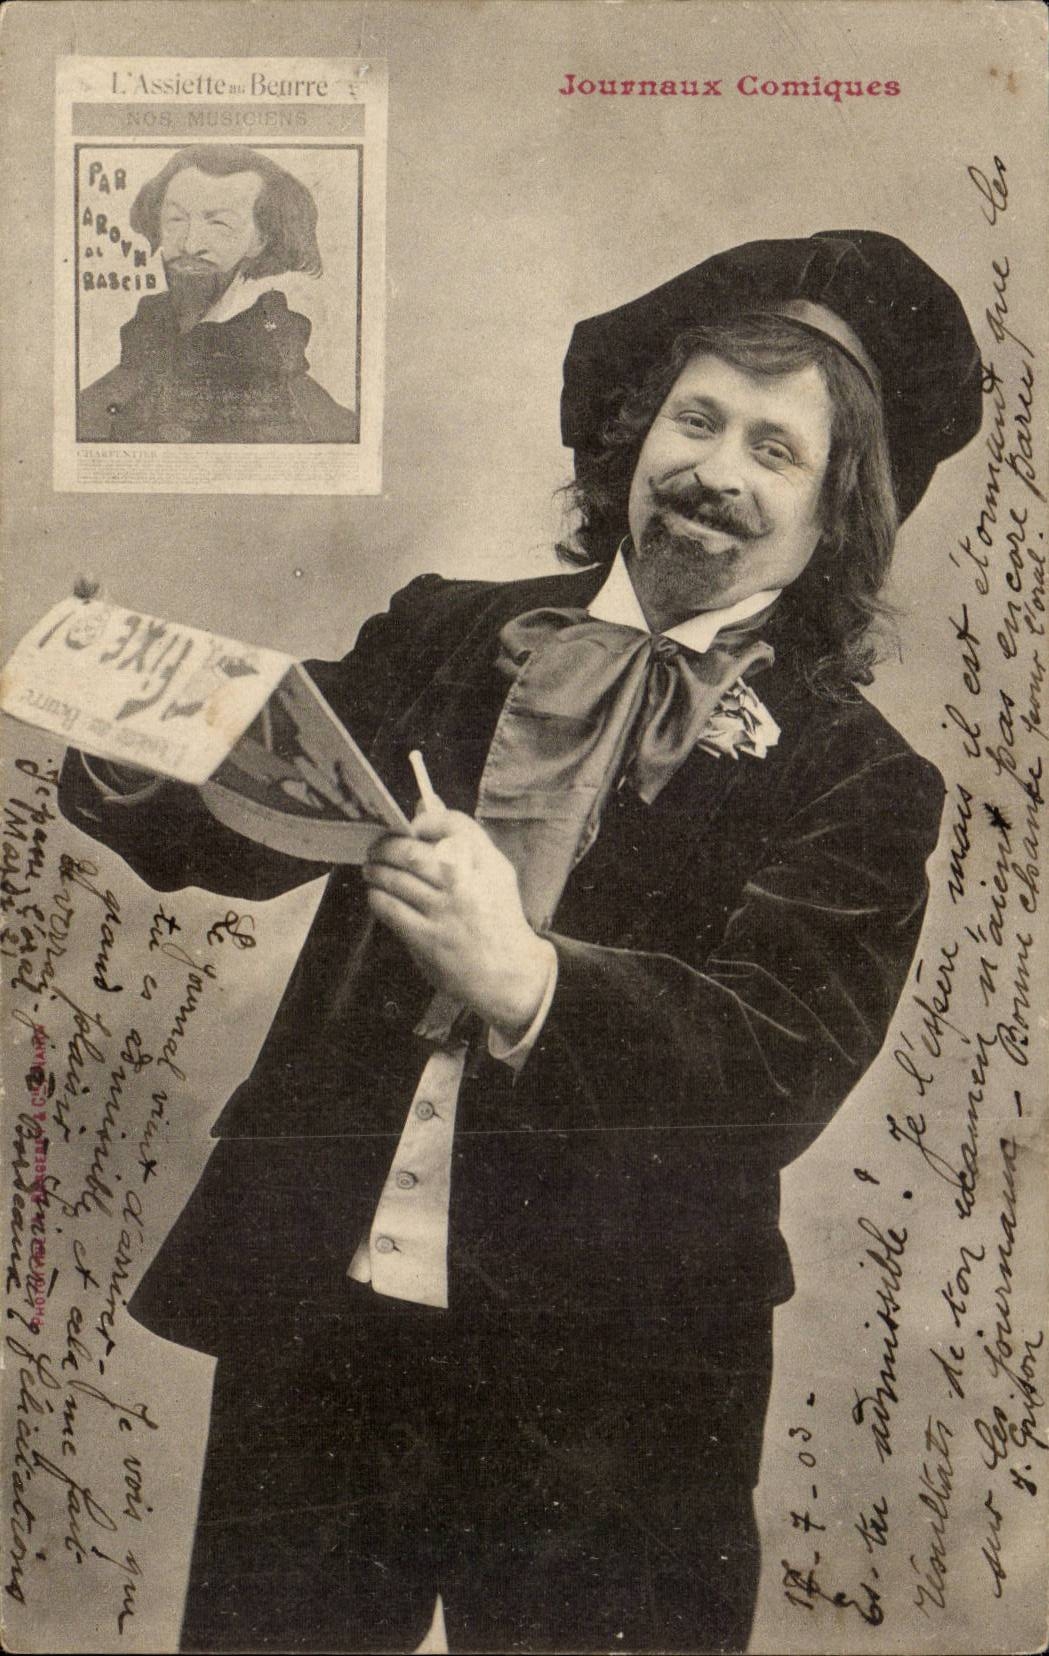 L'Assiette au Beurre
NOS MUSICIENS
PAR
AROUN
AL
RASCID
CHARPENTIER
Journaux Comiques
L'Assiette au beurre
FIXE
17-7-03-
Es-tu admissible? Je l'espère mais il est étonnant que les
résultats de ton examen n'aient pas encore paru
sur les journaux - Bonne chance pour l'oral.
J. Grison
Le journal vient d'arriver - Je vois que
tu es admissible et cela me fait
grand plaisir
verrai
Je passe l'oral
Mardi 21 Bordeaux félicitations